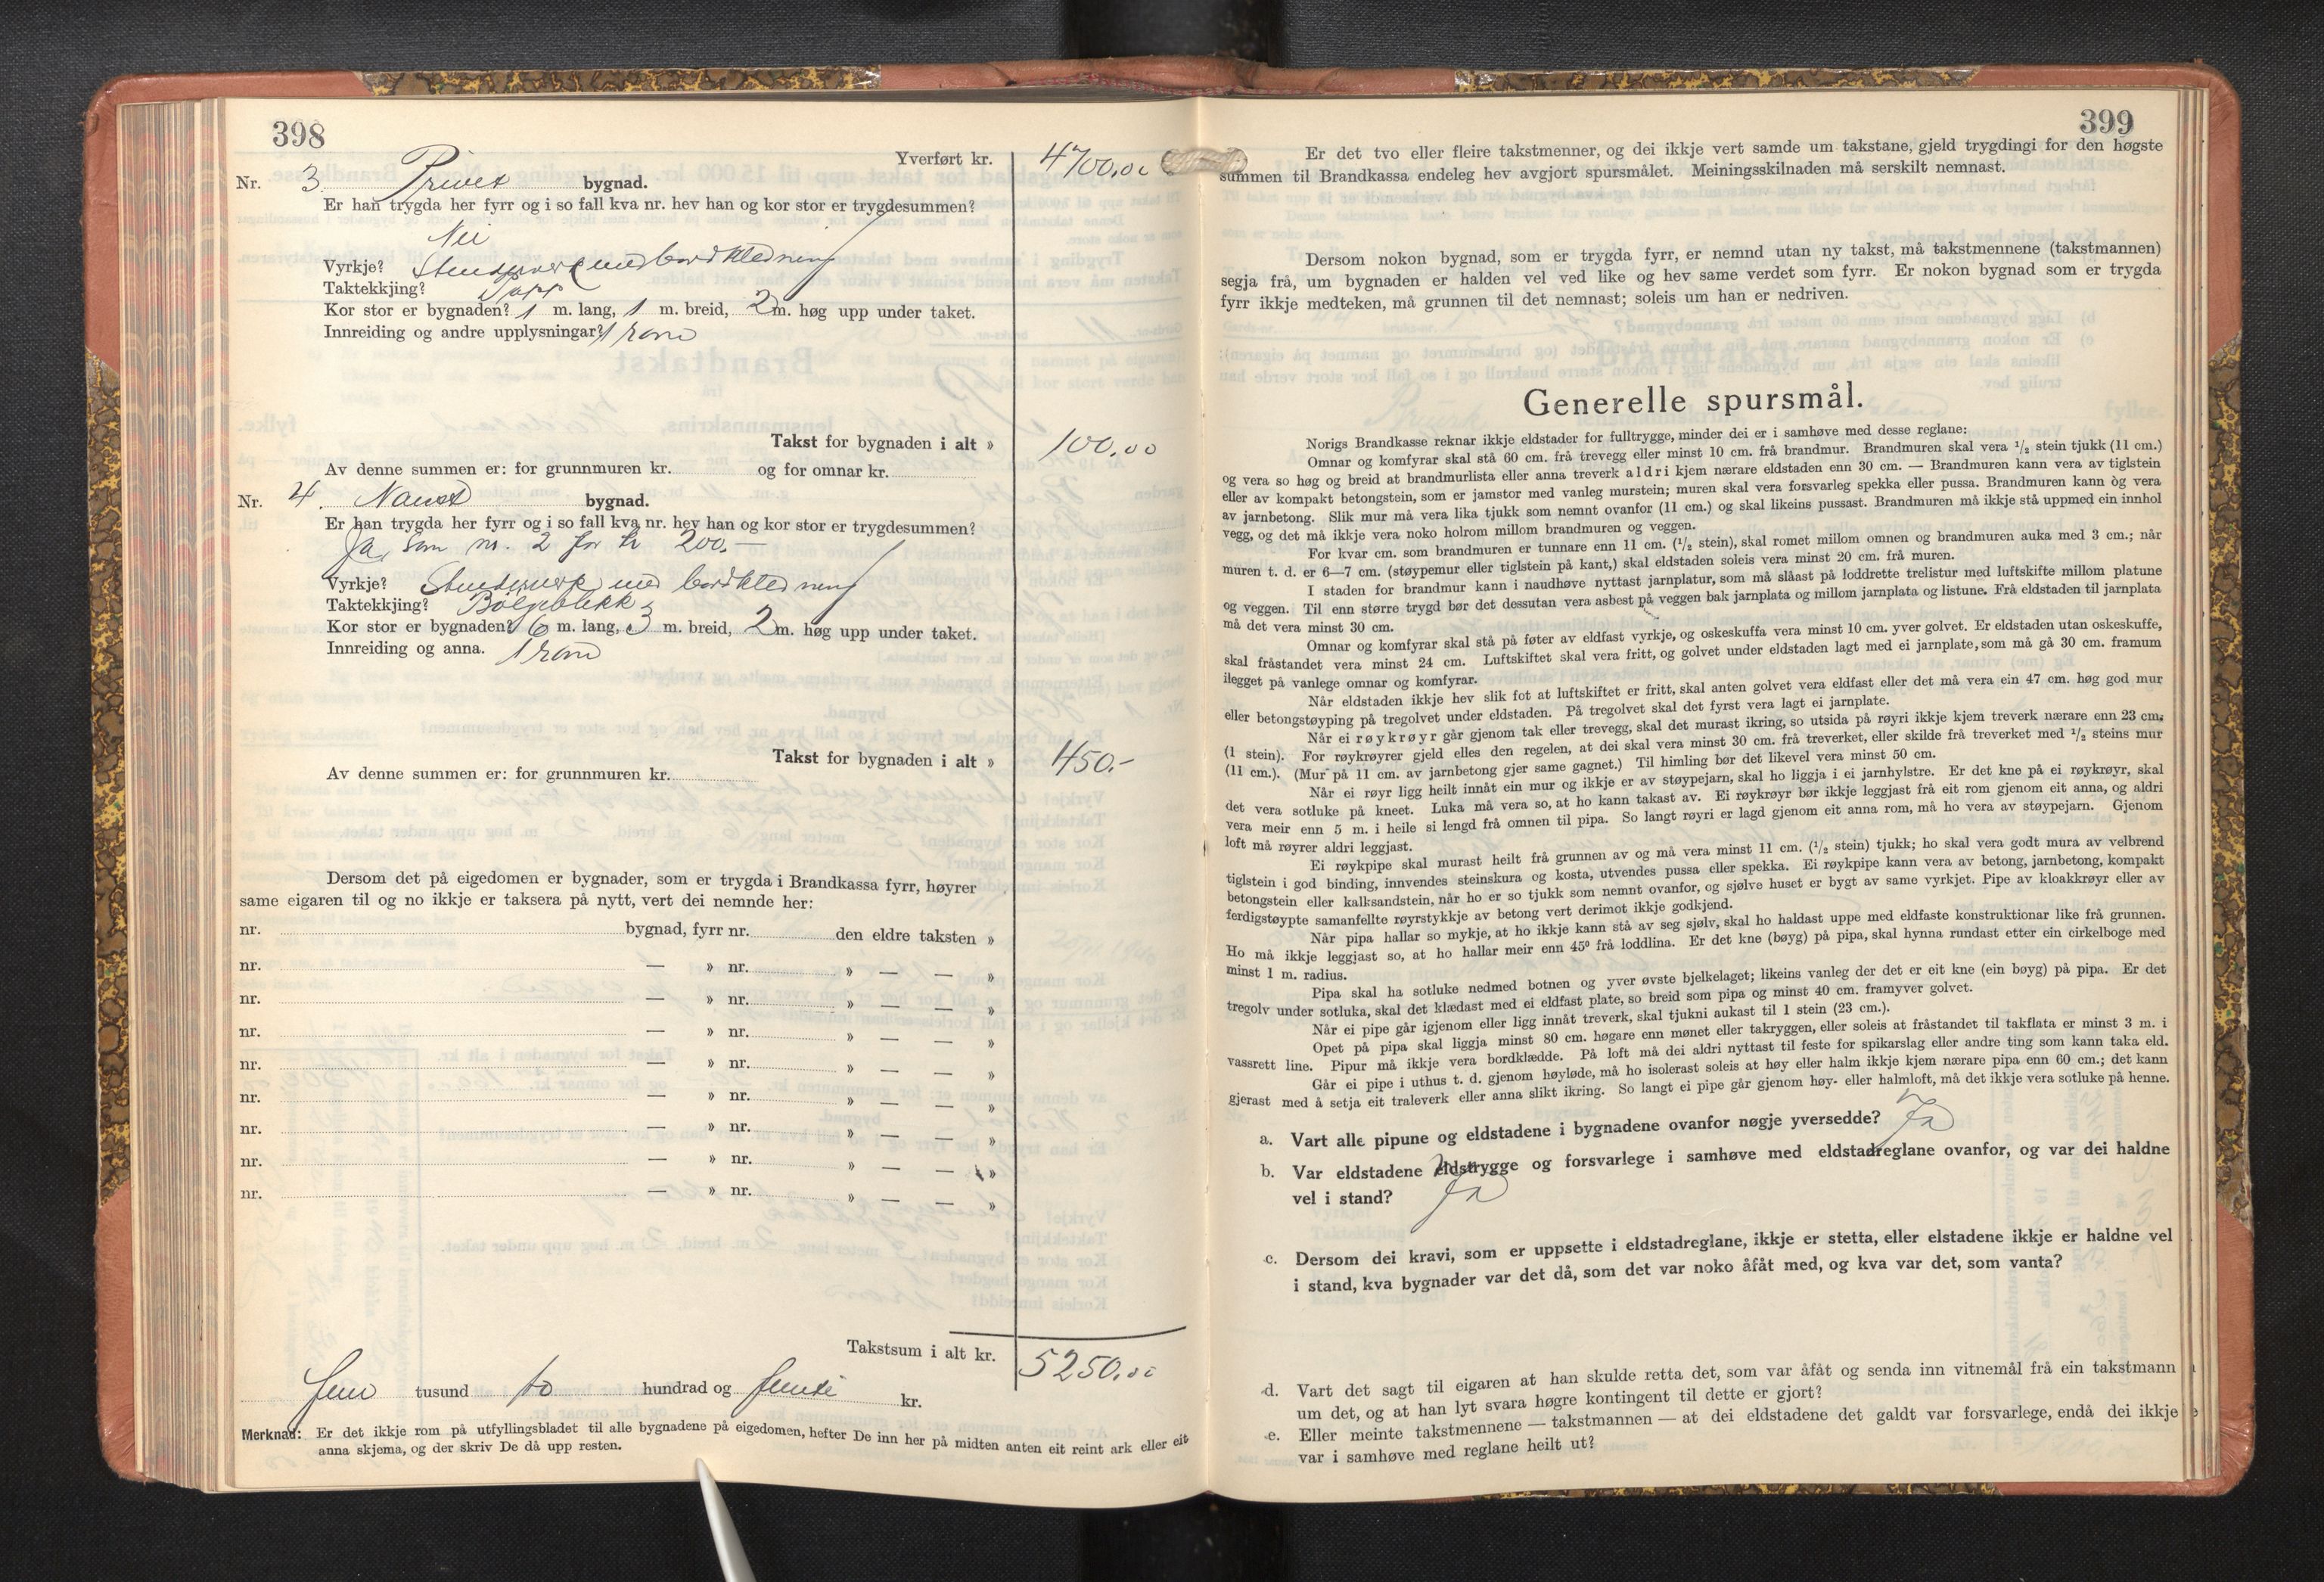 398
Yverført kr. 4700,00
Nr. 3. Privet bygnad.
Er han trygda her fyrr og i so fall kva nr. hev han og kor stor er trygdesummen?
Nei
Vyrkje? Stenderverk med bordkledning
Taktekkjing? Papp
Kor stor er bygnaden? 1 m. lang, 1 m. breid, 2 m. høg upp under taket.
Innreiding og andre upplysningar? 1 rom
Takst for bygnaden i alt » 100,00
Av denne summen er: for grunnmuren kr. og for omnar kr.
Nr. 4. Naust bygnad.
Er han trygda her fyrr og i so fall kva nr. hev han og kor stor er trygdesummen?
Ja, som nr. 2 for kr 200.-
Vyrkje? Stenderverk med bordkledning
Taktekkjing? Bølgeblekk
Kor stor er bygnaden? 6 m. lang, 3 m. breid, 2 m. høg upp under taket.
Innreiding og anna. 1 rom
Takst for bygnaden i alt » 450.-
Av denne summen er: for grunnmuren kr.
Dersom det på eigedomen er bygnader, som er trygda i Brandkassa fyrr, høyrer
same eigaren til og no ikkje er taksera på nytt, vert dei nemnde her:
nr. bygnad, fyrr nr. den eldre taksten »
nr. — » nr. » — — »
nr. — » nr. » — — »
nr. — » nr. » — — »
nr. — » nr. » — — »
nr. — » nr. » — — »
nr. — » nr. » — — »
nr. — » nr. » — — »
nr. — » nr. » — — »
Takstsum i alt kr. 5250,00
fem tusund to hundrad og femti kr.
Merknad: Er det ikkje rom på utfyllingsbladet til alle bygnadene på eigedomen, hefter De inn her på midten anten eit reint ark eller eit
anna skjema, og der skriv De då upp resten.
399
Er det tvo eller fleire takstmenner, og dei ikkje vert samde um takstane, gjeld trygdingi for den høgste
summen til Brandkassa endeleg hev avgjort spursmålet. Meiningsskilnaden må serskilt nemnast.
Dersom nokon bygnad, som er trygda fyrr, er nemnd utan ny takst, må takstmennene (takstmannen)
segja frå, um bygnaden er halden vel ved like og hev same verdet som fyrr. Er nokon bygnad som er trygda
fyrr ikkje medteken, må grunnen til det nemnast; soleis um han er nedriven.
Generelle spursmål.
Norigs Brandkasse reknar ikkje eldstader for fulltrygge, minder dei er i samhøve med desse reglane:
Omnar og komfyrar skal stå 60 cm. frå trevegg eller minst 10 cm. frå brandmur. Brandmuren skal vera 1/2 stein tjukk (11 cm.)
og vera so høg og breid at brandmurlista eller anna treverk aldri kjem nærare eldstaden enn 30 cm. — Brandmuren kann vera av tiglstein
eller av kompakt betongstein, som er jamstor med vanleg murstein; muren skal vera forsvarleg spekka eller pussa. Brandmuren kann òg vera
av jarnbetong. Slik mur må vera lika tjukk som nemnt ovanfor (11 cm.) og skal likeins pussast. Brandmuren må ikkje stå uppmed ein innhol
vegg, og det må ikkje vera noko holrom millom brandmuren og veggen.
For kvar cm. som brandmuren er tunnare enn 11 cm. (1/2 stein), skal romet millom omnen og brandmuren auka med 3 cm.; når
muren t. d. er 6—7 cm. (støypemur eller tiglstein på kant,) skal eldstaden soleis vera minst 20 cm. frå muren.
I staden for brandmur kann i naudhøve nyttast jarnplatur, som må slåast på loddrette trelistur med luftskifte millom platune
og veggen. Til enn større trygd bør det dessutan vera asbest på veggen bak jarnplata og millom jarnplata og listune. Frå eldstaden til jarnplata
må det vera minst 30 cm.
Omnar og komfyrar skal stå på føter av eldfast vyrkje, og oskeskuffa vera minst 10 cm. yver golvet. Er eldstaden utan oskeskuffe,
skal fråstandet vera minst 24 cm. Luftskiftet skal vera fritt, og golvet under eldstaden lagt med ei jarnplate, som må gå 30 cm. framum
ilegget på vanlege omnar og komfyrar.
Når eldstaden ikkje hev slik fot at luftskiftet er fritt, skal anten golvet vera eldfast eller det må vera ein 47 cm. høg god mur
eller betongstøyping på tregolvet under eldstaden. På tregolvet skal det fyrst vera lagt ei jarnplate.
Når ei røykrøyr går gjenom tak eller trevegg, skal det murast ikring, so utsida på røyri ikkje kjem treverk nærare enn 23 cm.
(1 stein). For røykrøyrer gjeld elles den regelen, at dei skal vera minst 30 cm. frå treverket, eller skilde frå treverket med 1/2 steins mur
(11 cm.). (Mur på 11 cm. av jarnbetong gjer same gagnet.) Til himling bør det likevel vera minst 50 cm.
Når ei røyr ligg heilt innåt ein mur og ikkje er av støypejarn, skal ho liggja i ei jarnhylstre. Er det kne på ei røykrøyr, skal
det vera sotluke på kneet. Luka må vera so, at ho kann takast av. Ei røykrøyr bør ikkje leggjast frå eit rom gjenom eit anna, og aldri
vera meir enn 5 m. i heile si lengd frå omnen til pipa. So langt røyri er lagd gjenom eit anna rom, må ho vera av støypejarn. Gjenom
loft må røyrer aldri leggjast.
Ei røykpipe skal murast heilt frå grunnen av og må vera minst 11 cm. (1/2 stein) tjukk; ho skal vera godt mura av velbrend
tiglstein i god binding, innvendes steinskura og kosta, utvendes pussa eller spekka. Ei røykpipe kann vera av betong, jarnbetong, kompakt
betongstein eller kalksandstein, når ho er so tjukk som nemnt ovanfor, og sjølve huset er bygt av same vyrkjet. Pipe av kloakkrøyr eller av
ferdigstøypte samanfellte røyrstykkje av betong vert derimot ikkje godkjend.
Når pipa hallar so mykje, at ho ikkje kann stå av seg sjølv, skal ho haldast uppe med eldfaste konstruktionar like frå grunnen.
Ho må ikkje leggjast so, at ho hallar meir enn 45° frå loddlina. Er det kne (bøyg) på pipa, skal hynna rundast etter ein cirkelboge med
minst 1 m. radius.
Pipa skal ha sotluke nedmed botnen og yver øvste bjelkelaget; likeins vanleg der det er eit kne (ein bøyg) på pipa. Er det
tregolv under sotluka, skal det klædast med ei eldfast plate, so breid som pipa og minst 40 cm. framyver golvet.
Når ei pipe går igjenom eller ligg innåt treverk, skal tjukni aukast til 1 stein (23 cm.).
Opet på pipa skal liggja minst 80 cm. høgare enn mønet eller takryggen, eller soleis at fråstandet til takflata er minst 3 m. i
vassrett line. Pipur må ikkje vera bordklædde. På loft må dei aldri nyttast til feste for spikarslag eller andre ting som kann taka eld.
Går ei pipe i uthus t. d. gjenom høyløde, må ho isolerast soleis at høy eller halm ikkje kjem nærare pipa enn 60 cm.; det kann
gjerast med å setja eit traleverk eller anna slikt ikring. So langt ei pipe går gjenom høy- eller halmloft, må det ikkje vera sotluke på henne.
a. Vart alle pipune og eldstadene i bygnadene ovanfor nøgje yversedde? Ja
b. Var eldstadene eldstrygge og forsvarlege i samhøve med eldstadreglane ovanfor, og var dei haldne
vel i stand? Ja
c. Dersom dei kravi, som er uppsette i eldstadreglane, ikkje er stetta, eller elstadene ikkje er haldne vel
i stand, kva bygnader var det då, som det var noko åfåt med, og kva var det, som vanta?
d. Vart det sagt til eigaren at han skulde retta det, som var åfåt og senda inn vitnemål frå ein takstmann
um det, og at han lyt svara høgre kontingent til dette er gjort?
e. Eller meinte takstmennene — takstmannen — at dei eldstadene det galdt var forsvarlege, endå dei ikkje
var i samhøve med reglane heilt ut?